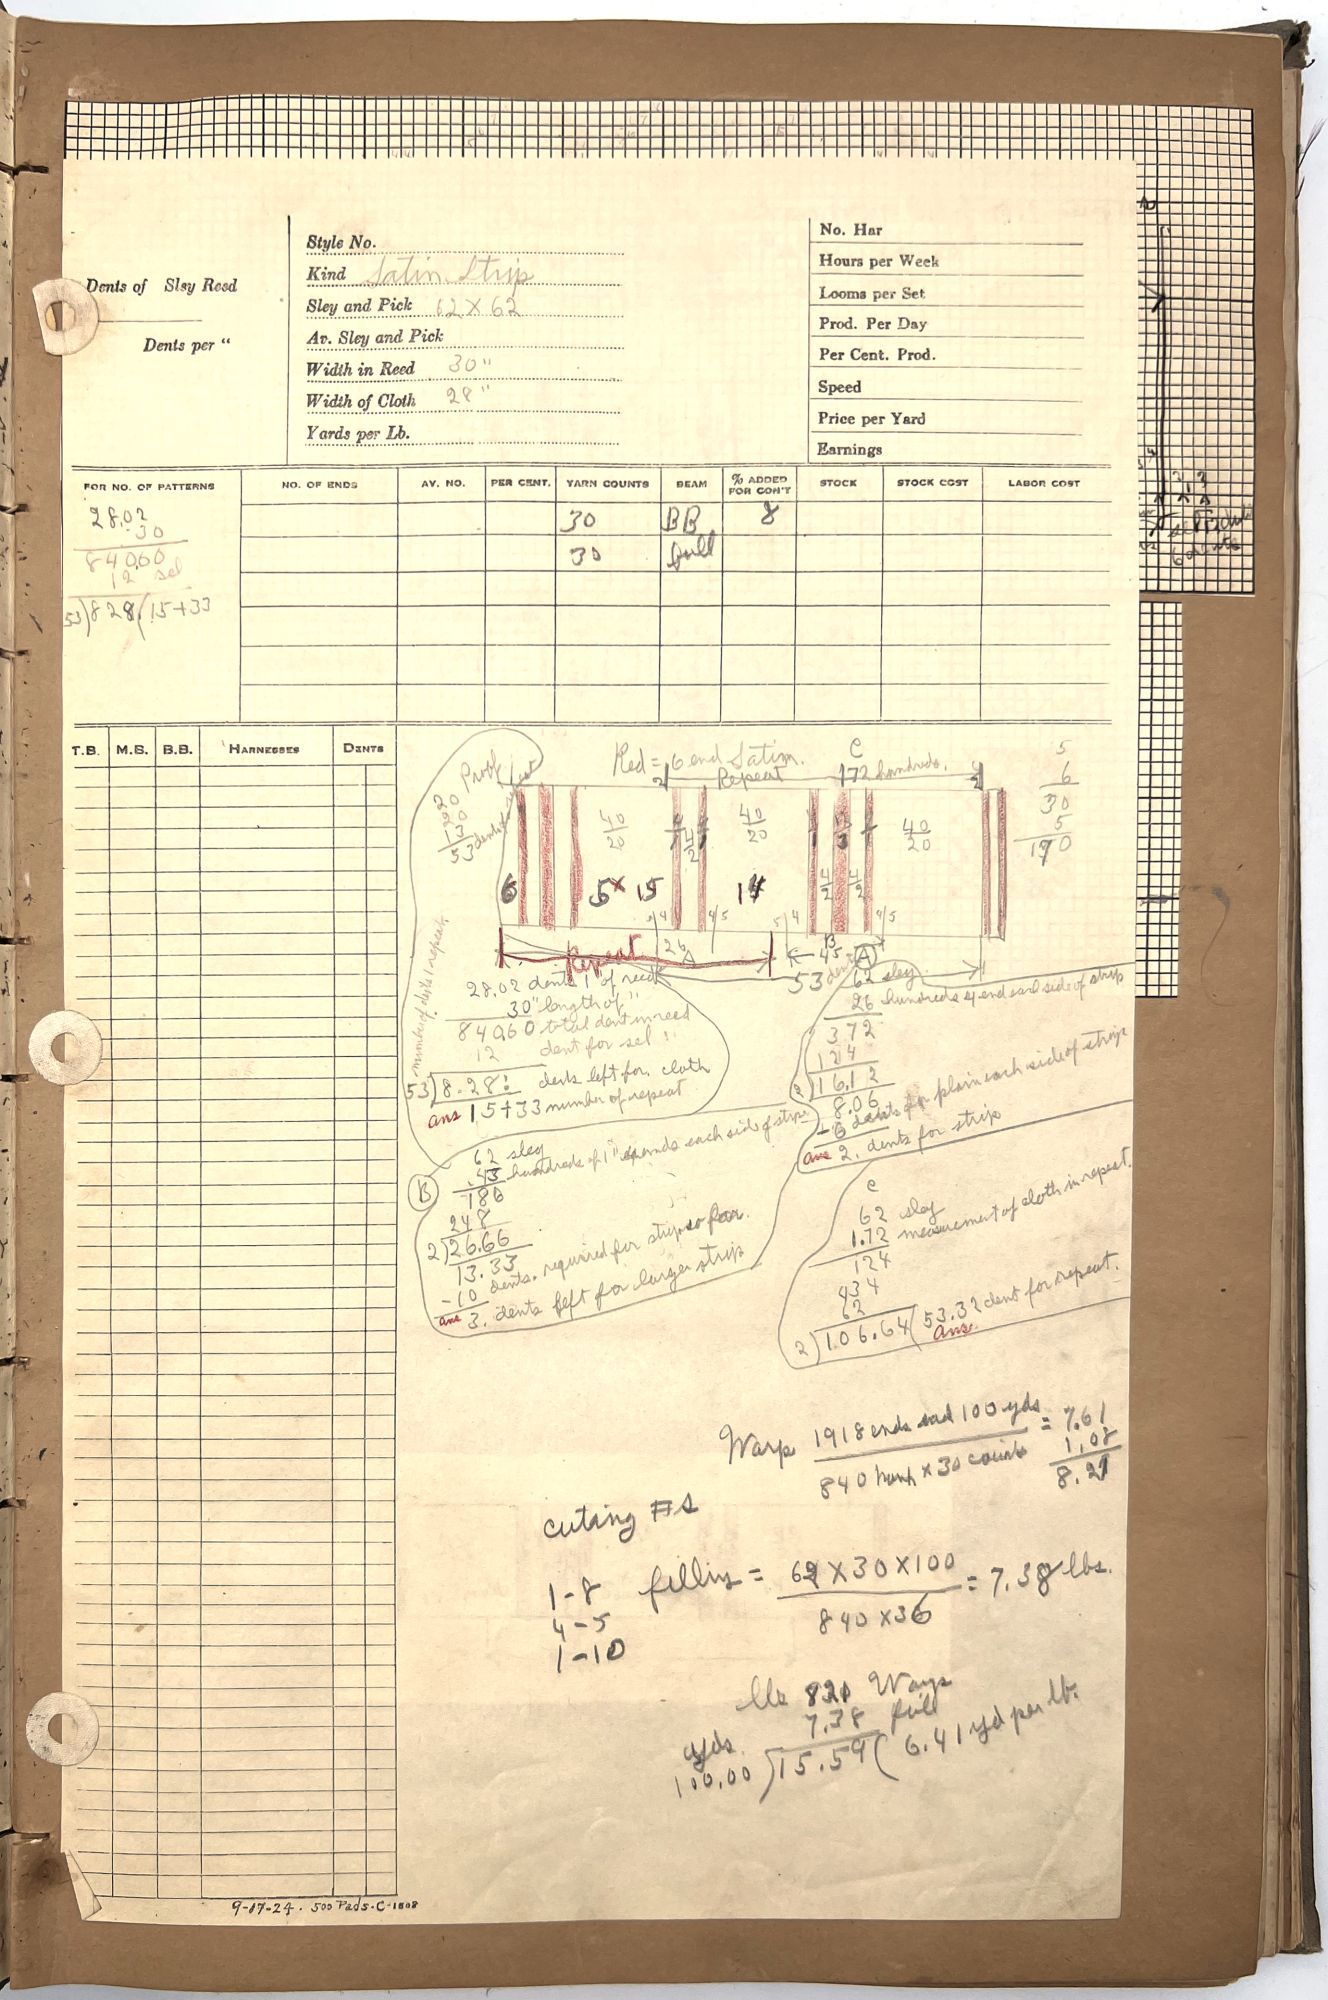 Dents of Slay Reed
Dents per "
Style No.
Kind Satin Strip
Sley and Pick 62 X 62
Av. Sley and Pick
Width in Reed 30"
Width of Cloth 28"
Yards per Lb.
No. Har
Hours per Week
Looms per Set
Prod. Per Day
Per Cent. Prod.
Speed
Price per Yard
Earnings
FOR NO. OF PATTERNS NO. OF ENDS AV. NO. PER CENT. YARN COUNTS BEAM % ADDED FOR CON'T STOCK STOCK COST LABOR COST
28.02
30
84060
12 sel
53)828(15+33
30 BB 8
30 full
T.B. M.B. B.B. HARNESSES DENTS
Proof
20
20
13
53 dents
number of dents 1 repeat
Red = 6 end Satin.
C
Repeat 172 hundreds.
5
6
30
5
190
40/20 40/20 40/20
4/2 4/2 4/2
6 5 x 15 14
5/4 4/5 5/4 4/5
Repeat
26
A
B
45
53 dents
28.02 dents 1" of reed
30" length of "
84060 total dent in reed
12 dent for sel "
53)8-28! dents left for cloth
ans 15+33 number of repeat
A
62 sley
26 hundreds of end each side of strip
372
124
2)16.12
8.06
-6 dents for plain each side of strip
ans 2. dents for strip
B
62 sley
.43 hundreds of 1" grounds each side of strip
186
248
2)26.66
13.33
-10 dents. required for strip so far.
ans 3. dents left for larger strip
C
62 sley
1.72 measurement of cloth in repeat.
124
434
62
2)106.64(53.32 dent for repeat.
ans.
Warp 1918 ends and 100 yds = 7.61
840 hank x 30 counts 1.08
8.21
cutting #s
1-8
4-5
1-10
filling = 62 X 30 X 100 = 7.38 lbs.
840 X 36
lbs 821 Warp
7.38 fill
yds.
100.00)15.59(6.41 yd per lb.
9-17-24. 500 Pads-C-1808